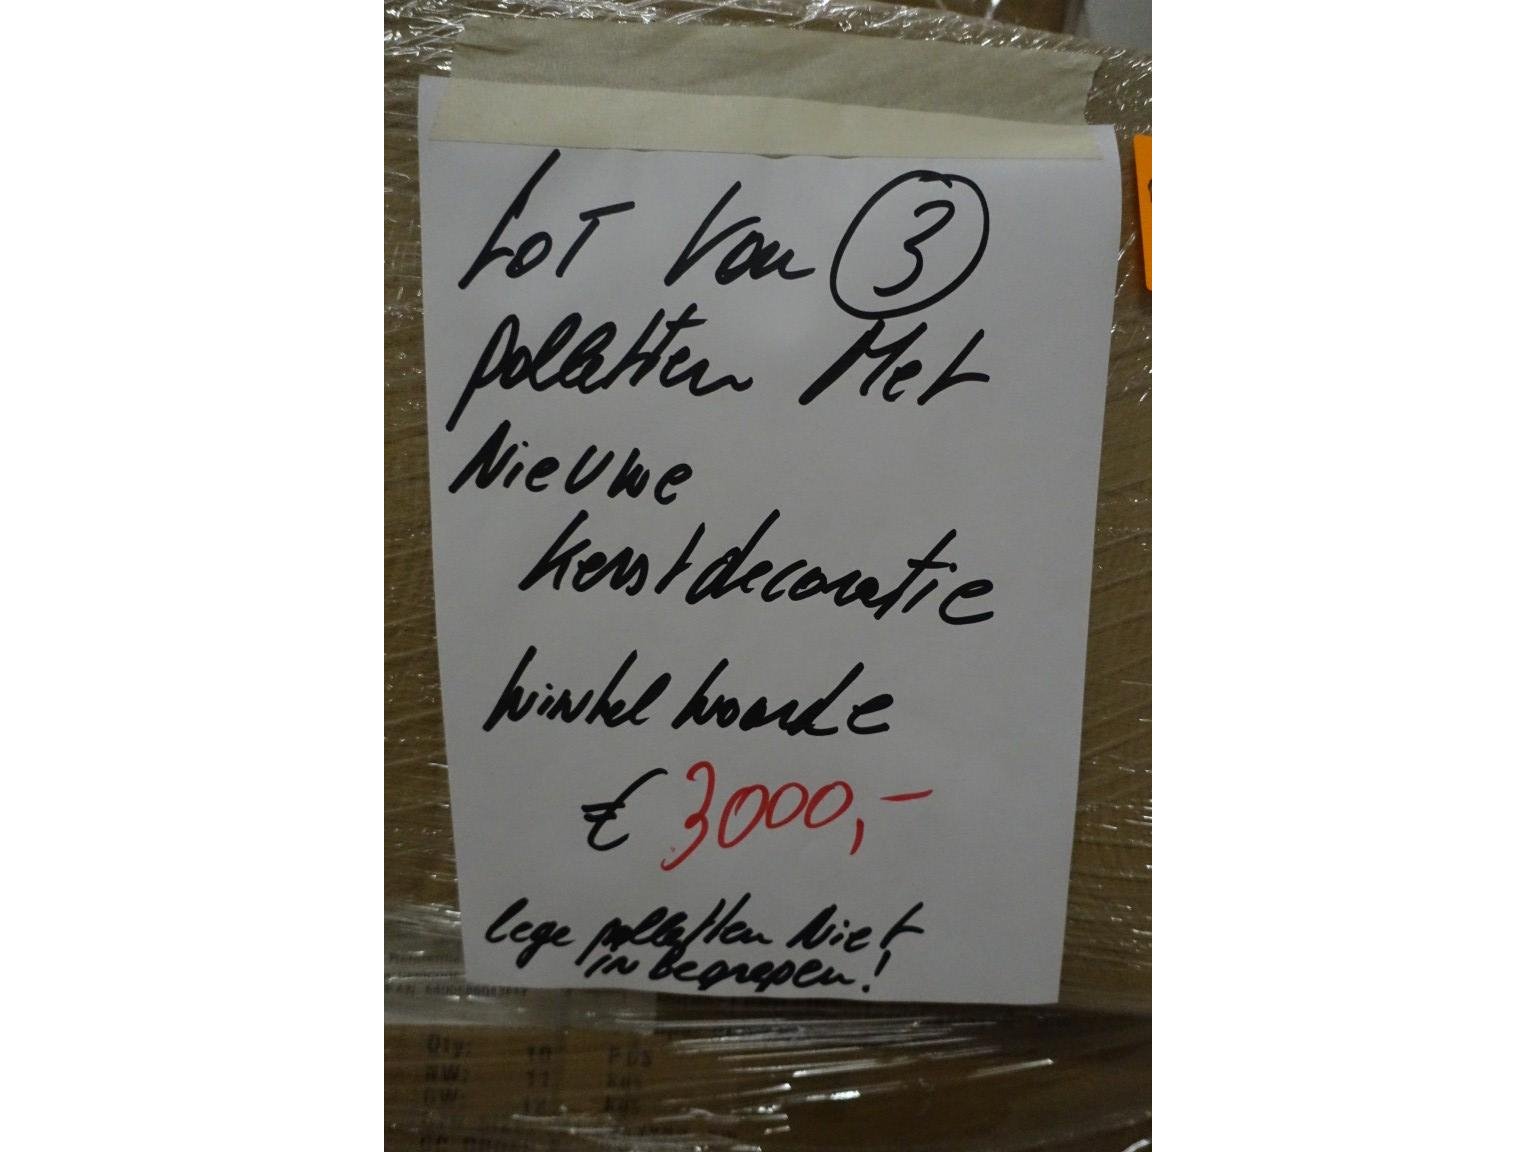 LOT van 3
palletten Met
Nieuwe
kerstdecoratie
winkelwaarde
€ 3000,-
lege palletten Niet
inbegrepen!
Qty: 10 Pcs
NW: 11 kgs
GW: 12 kgs